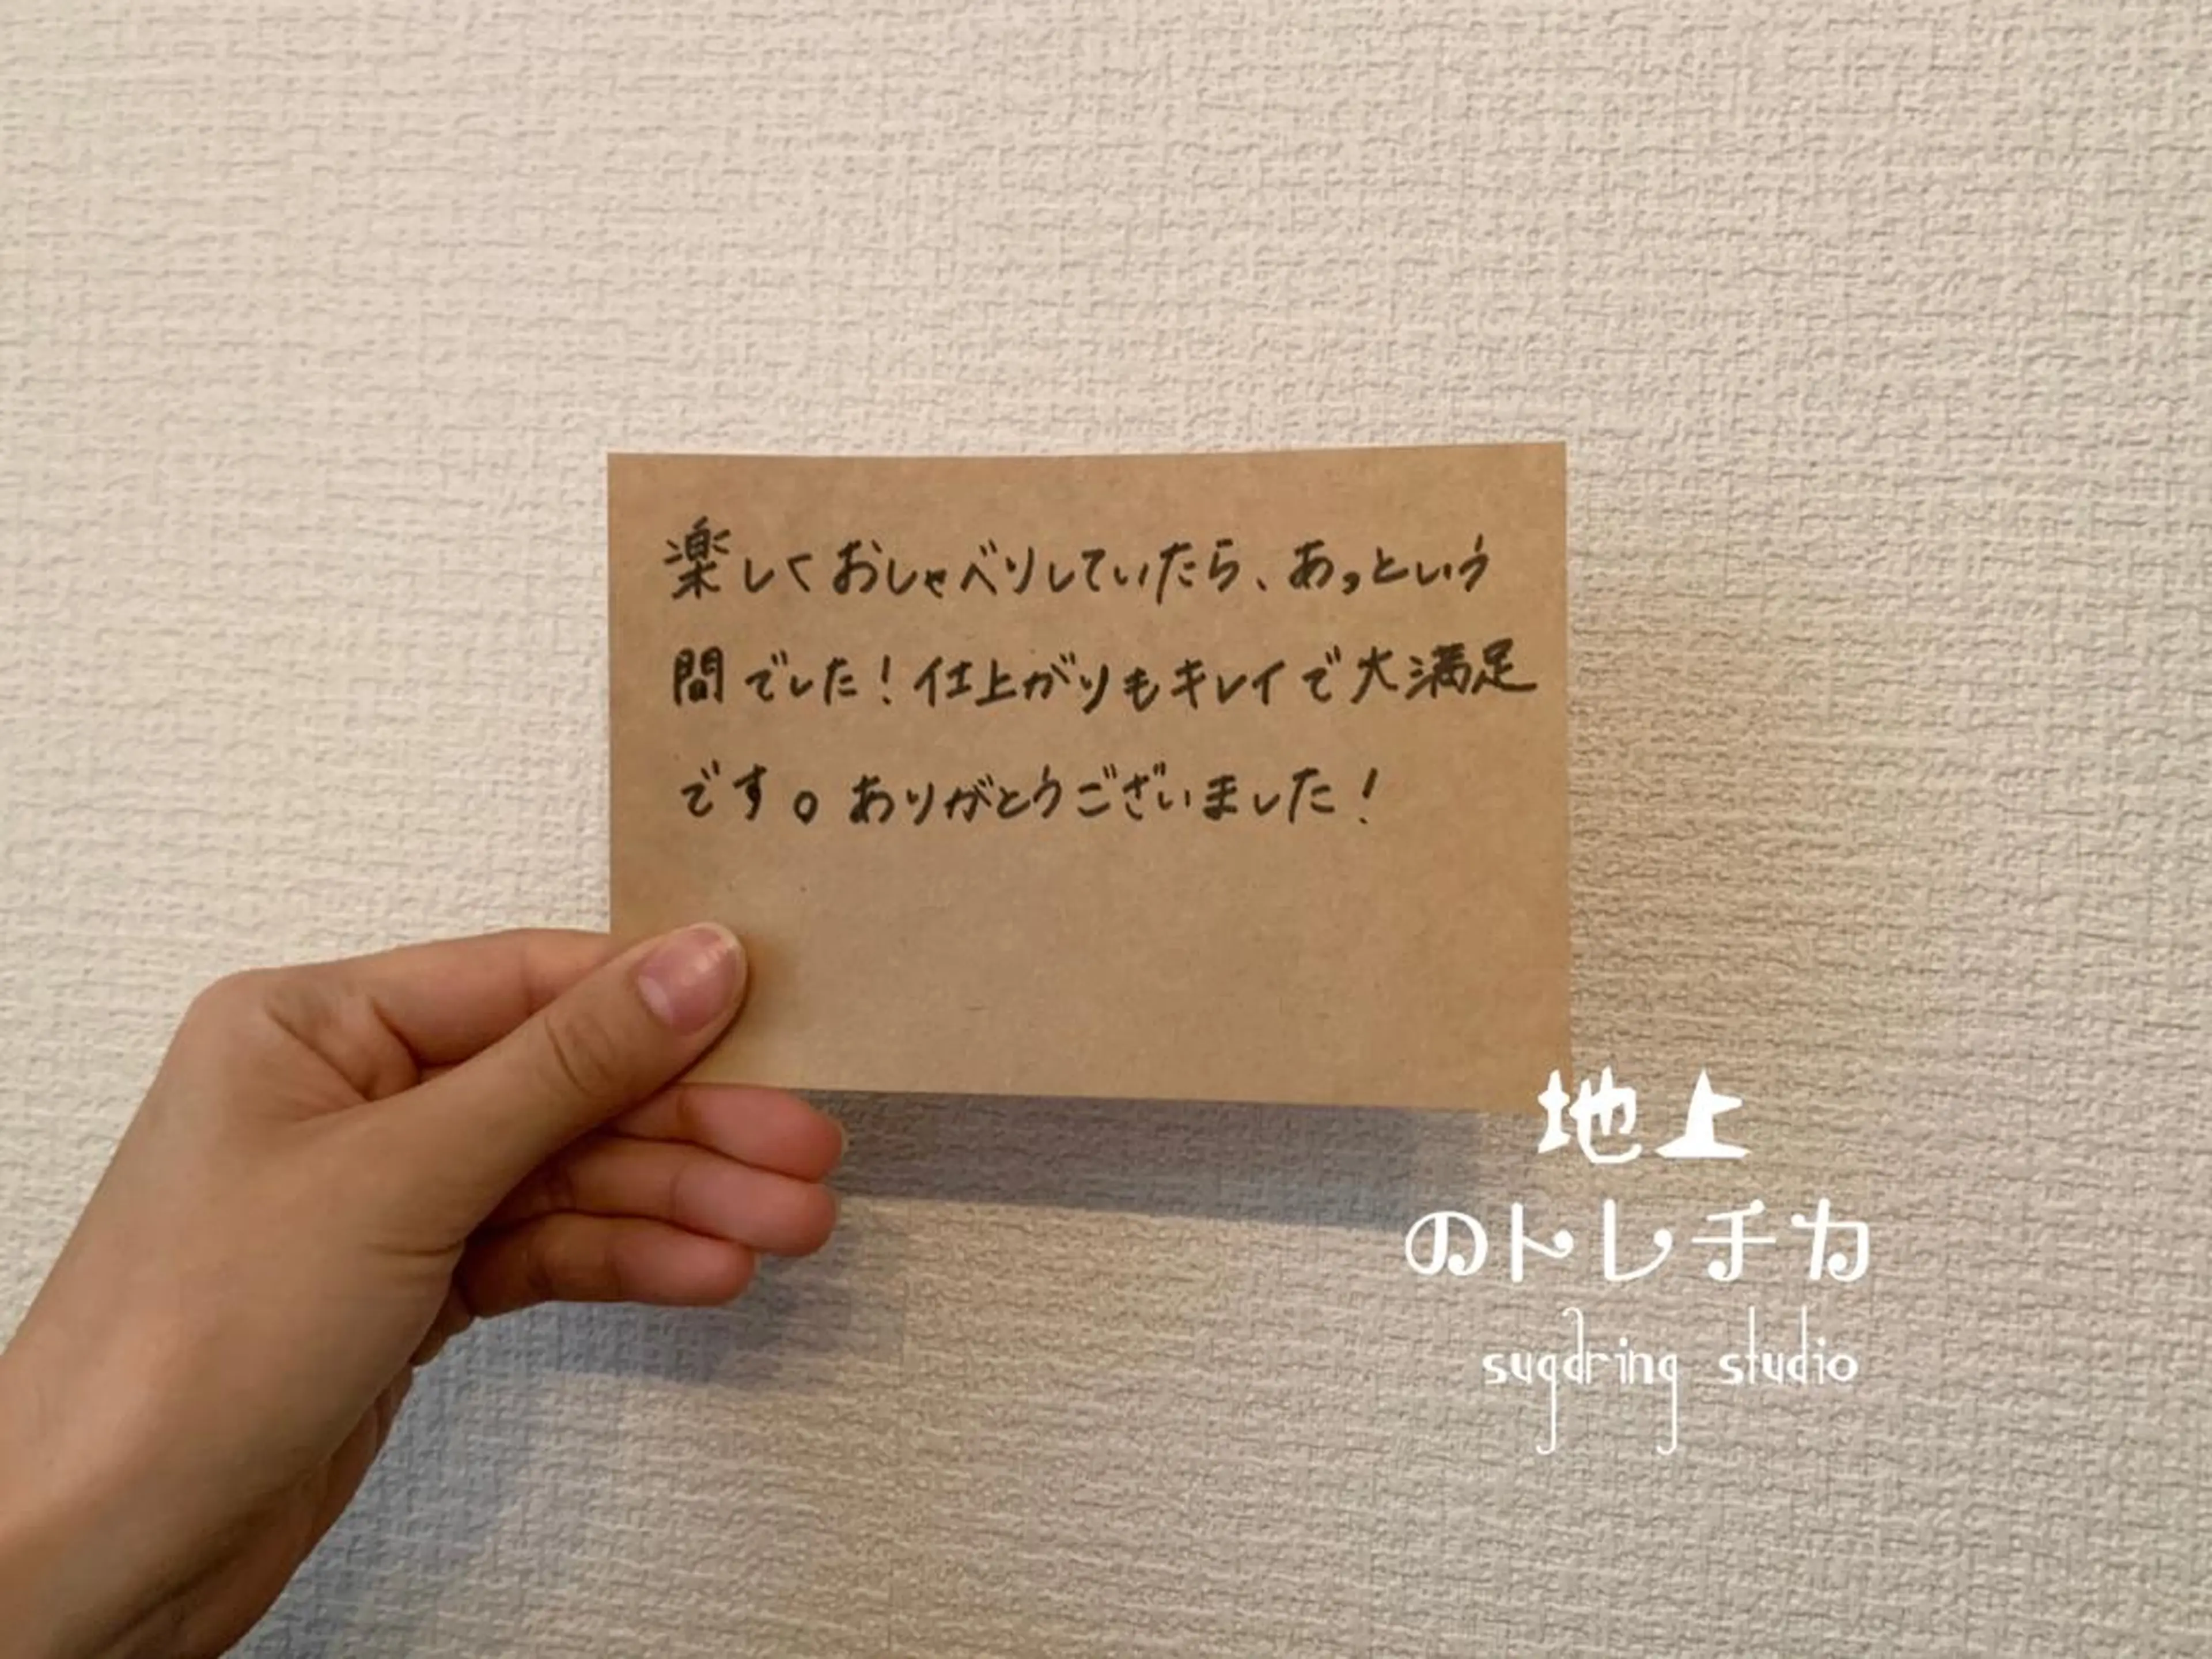 楽しくおしゃべりしていたら、あっという
間でした！仕上がりもキレイで大満足
です。ありがとうございました！
地上
のトレチカ
sugaring studio